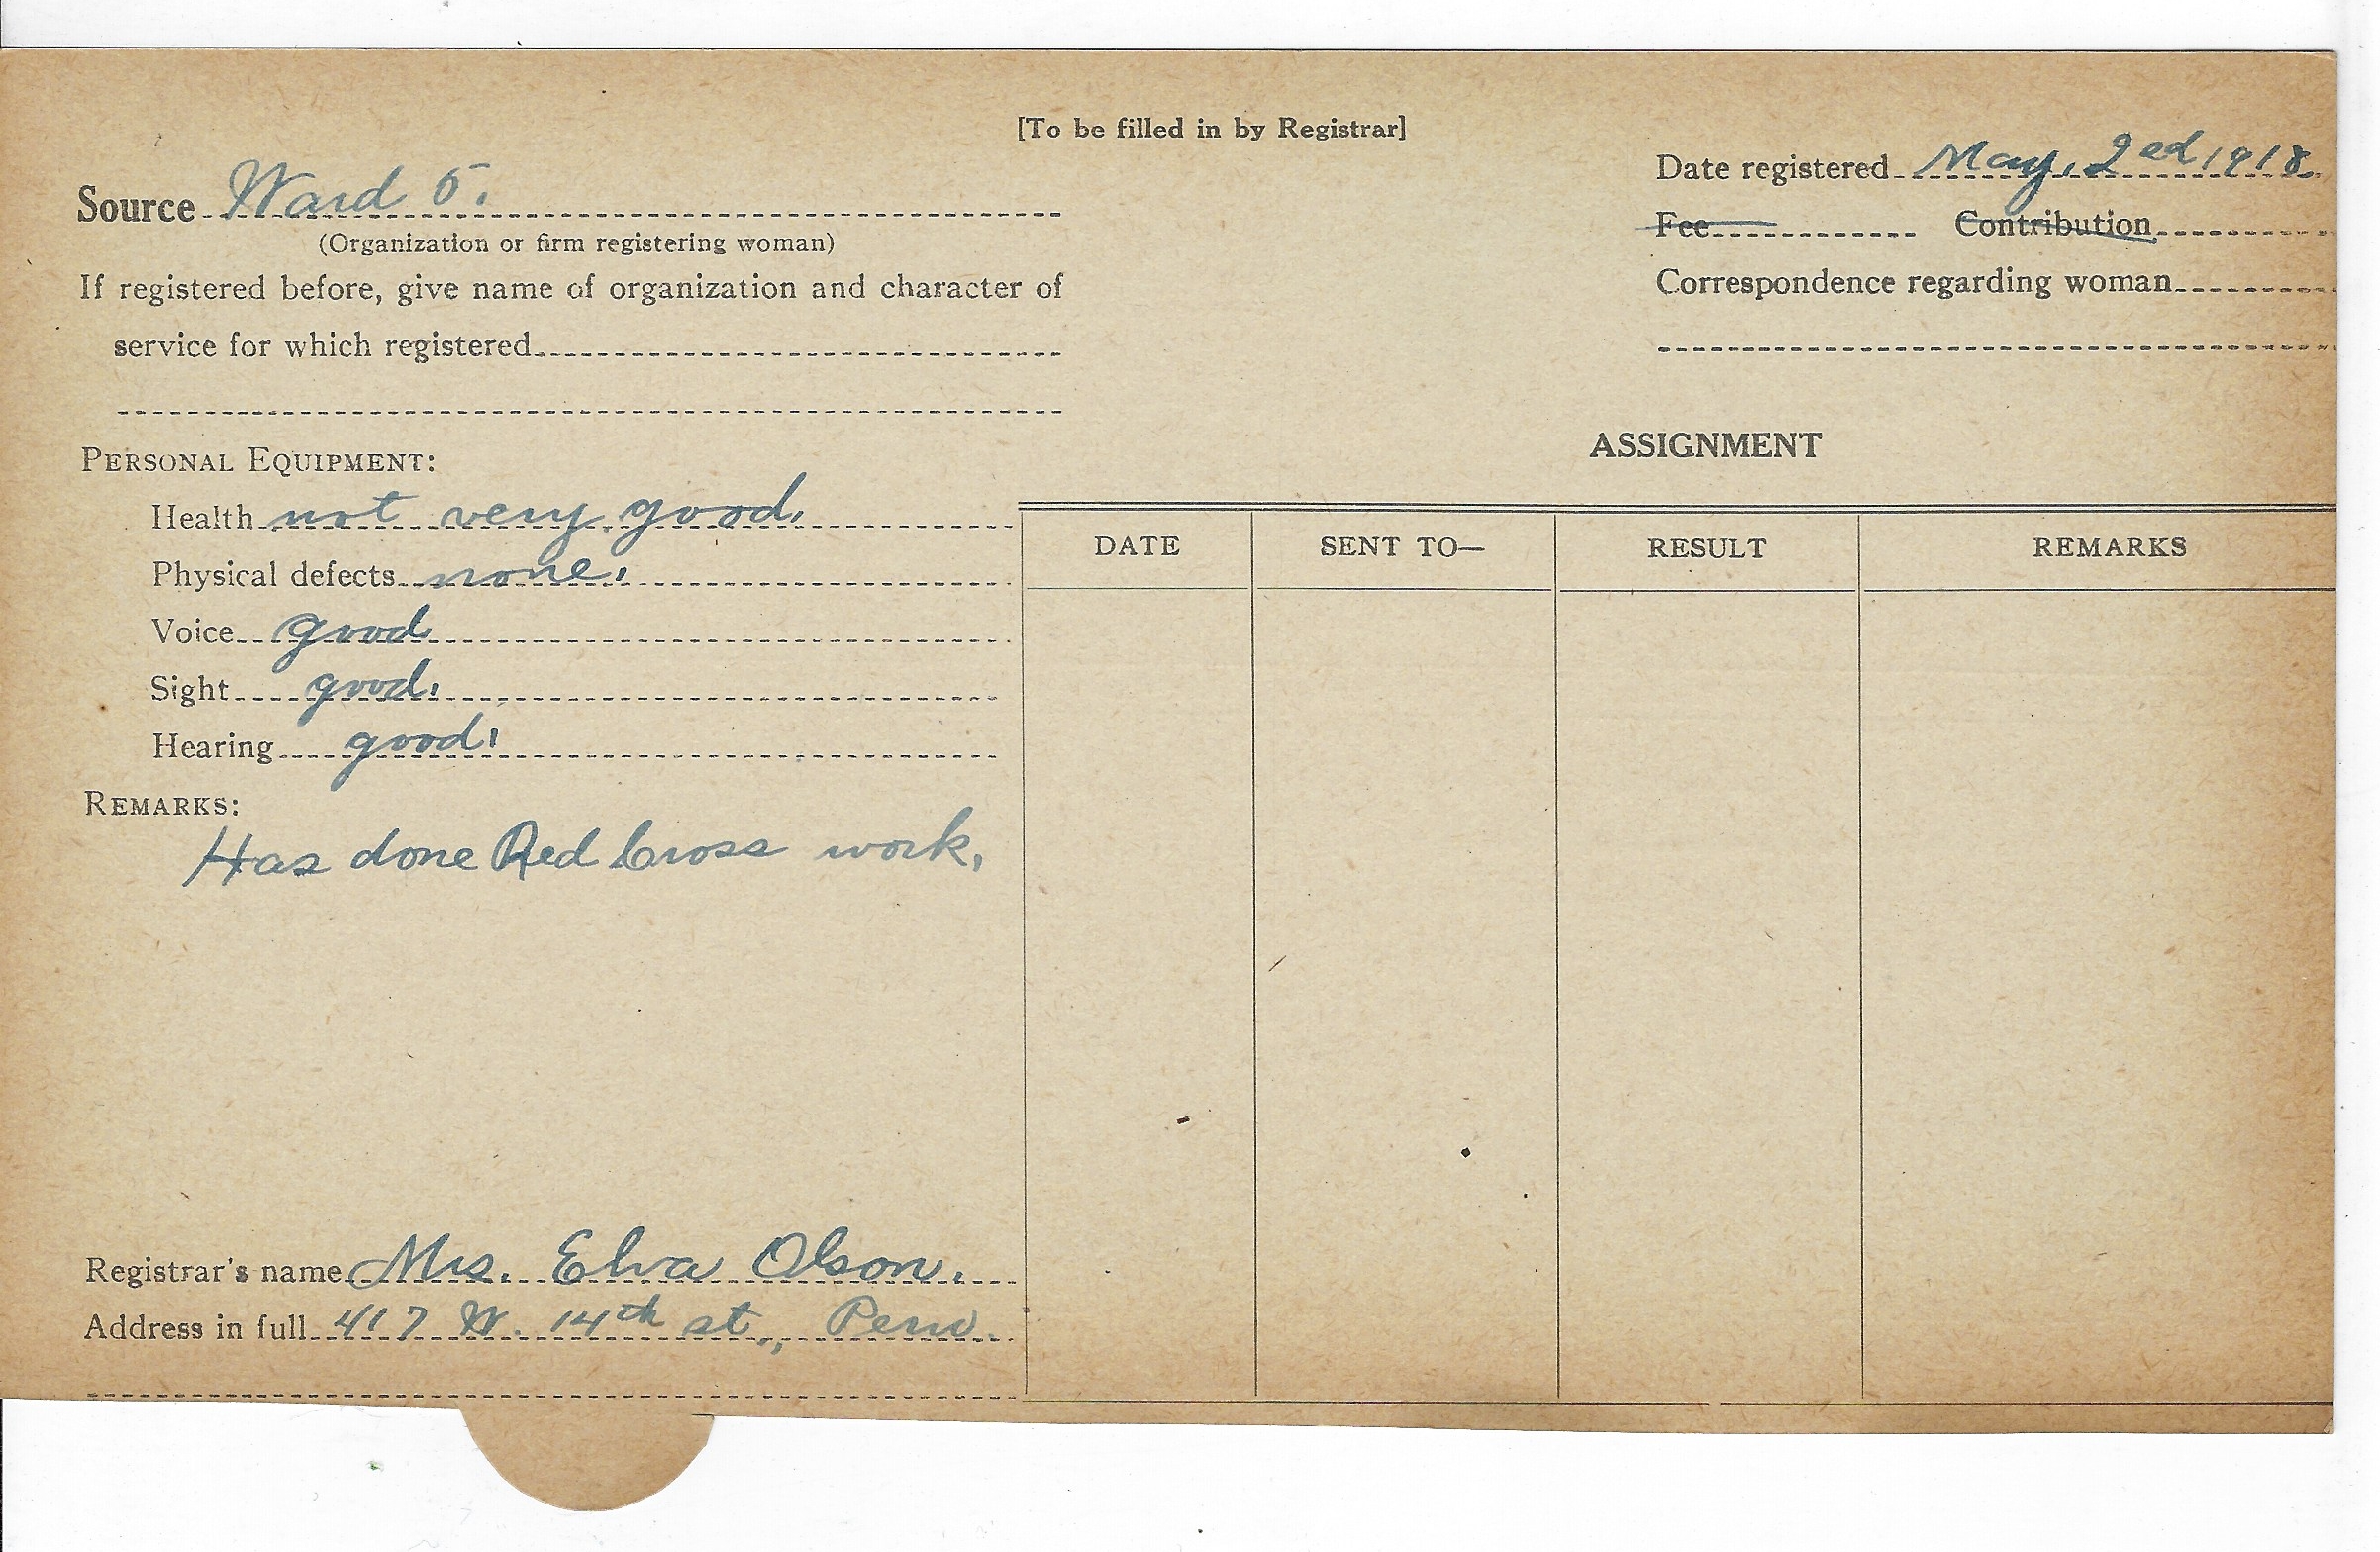 [To be filled in by Registrar]
Source Ward 5.
(Organization or firm registering woman)
If registered before, give name of organization and character of
service for which registered
Date registered May, 2ed 1918.
Fee Contribution
Correspondence regarding woman
PERSONAL EQUIPMENT:
Health not very good.
Physical defects none.
Voice good
Sight good.
Hearing good.
REMARKS:
Has done Red Cross work.
Registrar's name Mrs. Elva Olson.
Address in full 417 W. 14th st., Peru.
ASSIGNMENT
DATE SENT TO— RESULT REMARKS